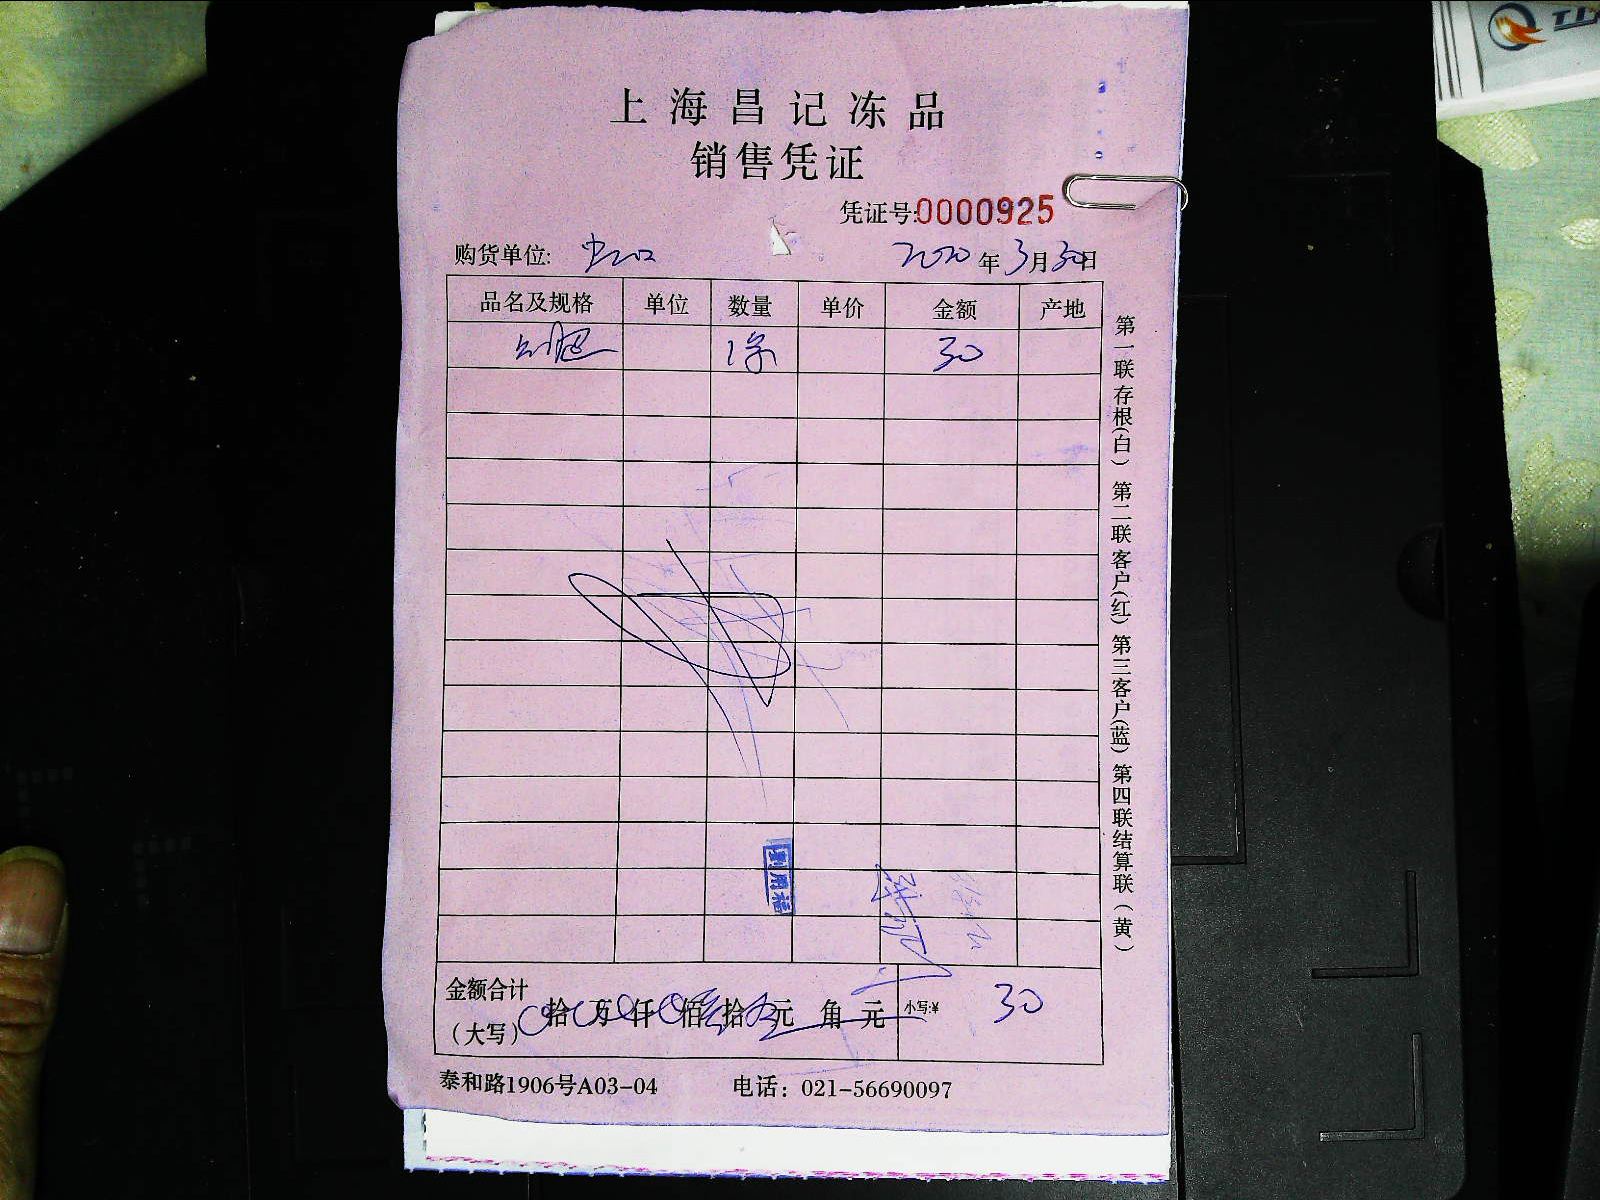 上海昌记冻品
销售凭证
凭证号:0000925
购货单位: 2020年3月30日
品名及规格 单位 数量 单价 金额 产地
30
金额合计
(大写) 拾 万 仟 佰 拾 元 角 元 小写:¥ 30
泰和路1906号A03-04 电话：021-56690097
第一联存根(白) 第二联客户(红) 第三客户(蓝) 第四联结算联(黄)